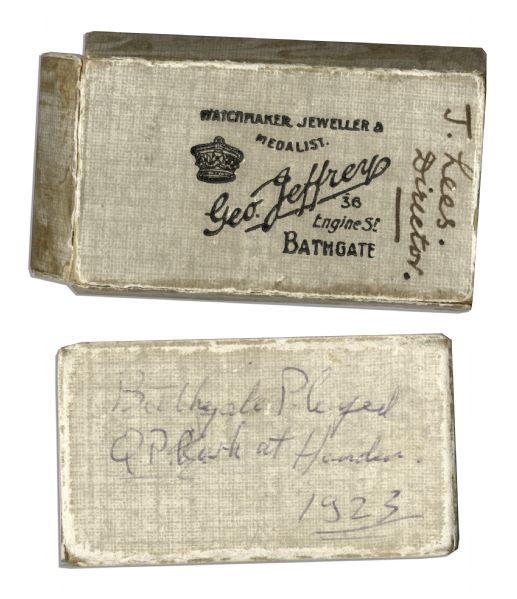 WATCHMAKER JEWELLER &
MEDALIST.
Geo. Jeffrey
36
Engine St
BATHGATE
J. Lees.
Director.
Bathgate Played
Q P. at
1923